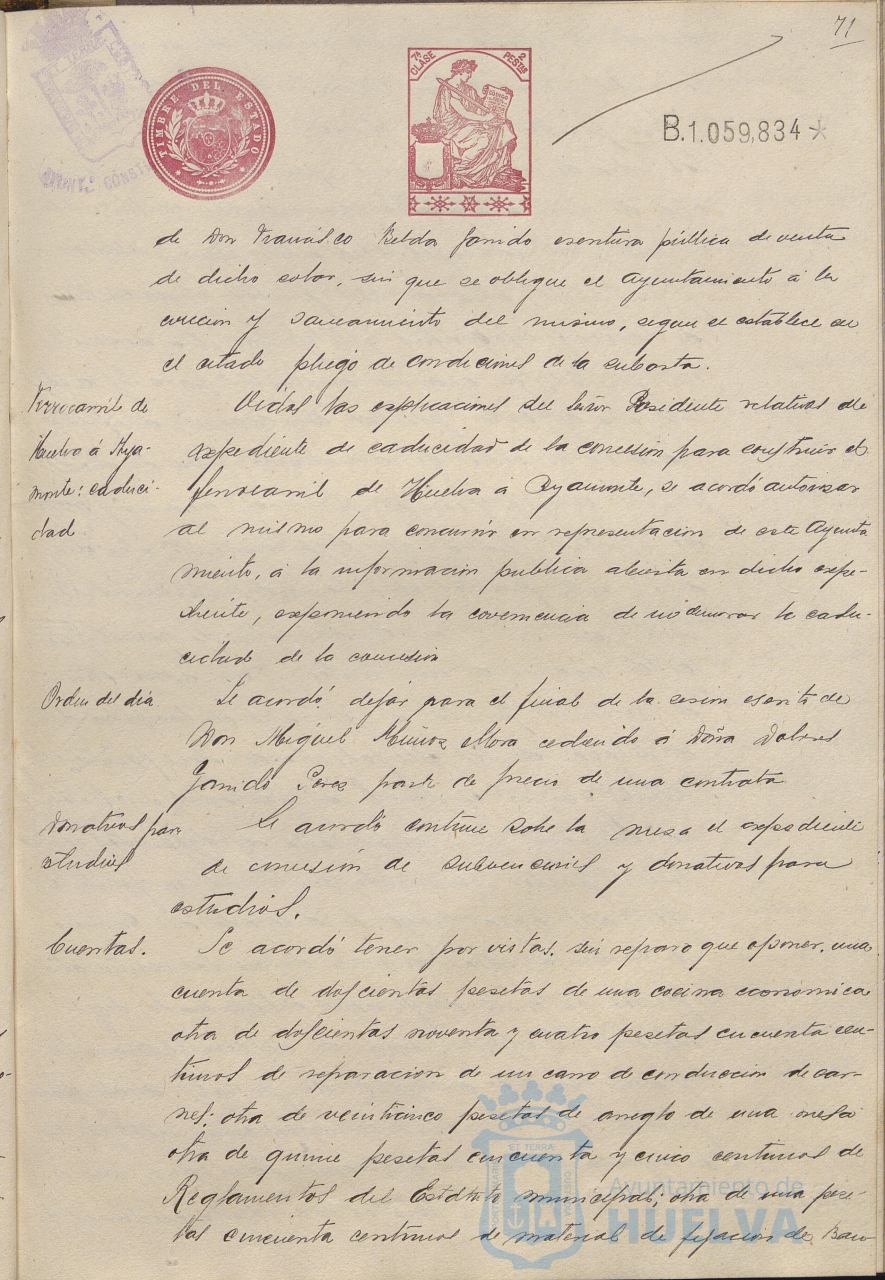 71
TIMBRE DEL ESTADO
7ª CLASE 2 PESTAS
B.1.059,834 *
de Don Francisco Belda Garrido escritura pública de venta
de dicho solar, sin que se obligue el Ayuntamiento á la
evicción y saneamiento del mismo, segun se establece en
el citado pliego de condiciones de la subasta.
Ferrocarril de
Huelva á Aya-
monte: caduci-
dad
Oidas las explicaciones del Señor Presidente relativas al
expediente de caducidad de la concesion para construir el
ferrocarril de Huelva á Ayamonte, se acordó autorizar
al mismo para concurrir en representacion de este Ayunta
miento, á la informacion publica abierta en dicho expe-
diente, exponiendo la de no demorar la cadu-
cidad de la concesion
Orden del dia
Se acordó dejar para el final de la sesion escrito de
Don Miguel Muñoz Mora cediendo á Doña Dolores
Garrido Perez parte de precio de una contrata
Donativos para
estudios
Se acordó continue sobre la mesa el expediente
de concesión de subvenciones y donativos para
estudios.
Cuentas.
Se acordó tener por vistas, sin reparo que oponer, una
cuenta de doscientas pesetas de una cocina economica
otra de doscientas noventa y cuatro pesetas cincuenta cen-
timos de reparacion de un carro de conduccion de car-
nes; otra de veinticinco pesetas de arreglo de una mesa
otra de quince pesetas cincuenta y cinco centimos de
Reglamentos del Estatuto municipal; otra de una pese-
tas cincuenta centimos de material de fijacion de Ban
Ayuntamiento de
HUELVA